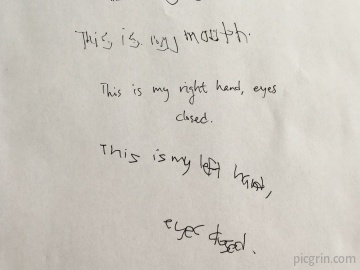 This is my mouth.
This is my right hand, eyes
closed.
This is my left hand,
eyes closed.
picgrin.com